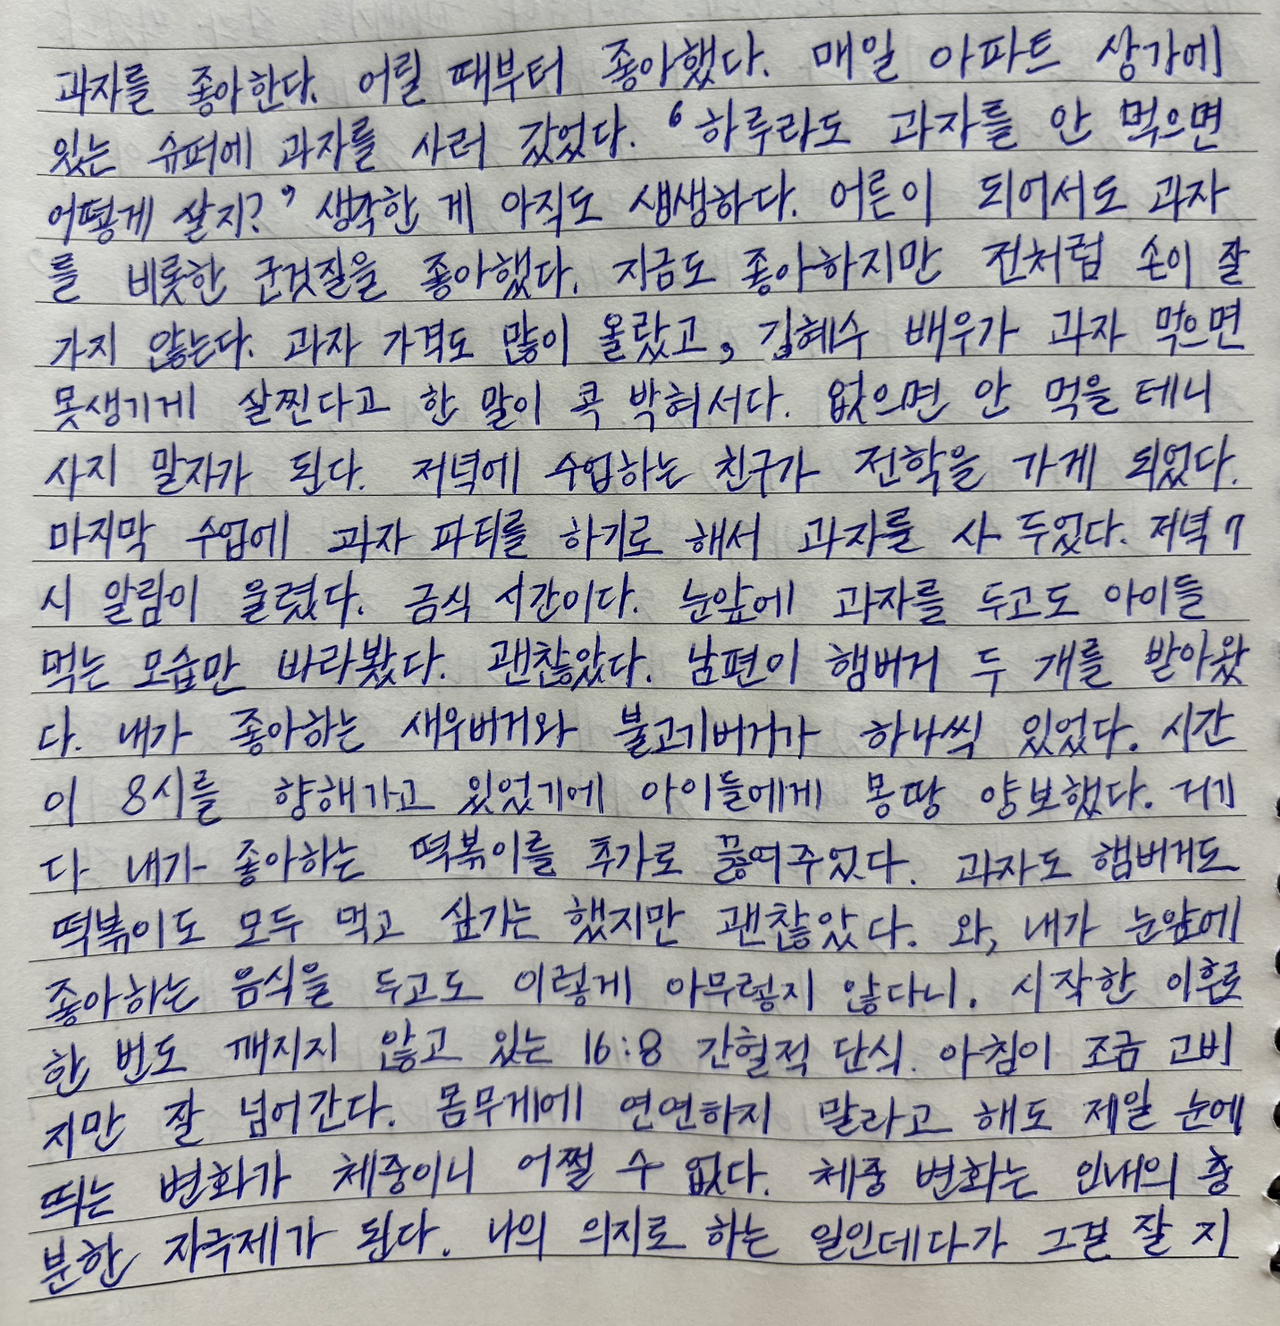 과자를 좋아한다. 어릴 때부터 좋아했다. 매일 아파트 상가에
있는 슈퍼에 과자를 사러 갔었다. ‘하루라도 과자를 안 먹으면
어떻게 살지?’ 생각한 게 아직도 생생하다. 어른이 되어서도 과자
를 비롯한 군것질을 좋아했다. 지금도 좋아하지만 전처럼 손이 잘
가지 않는다. 과자 가격도 많이 올랐고, 김혜수 배우가 과자 먹으면
못생기게 살찐다고 한 말이 콕 박혀서다. 없으면 안 먹을 테니
사지 말자가 된다. 저녁에 수업하는 친구가 전학을 가게 되었다.
마지막 수업에 과자 파티를 하기로 해서 과자를 사 두었다. 저녁 7
시 알람이 울렸다. 금식 시간이다. 눈앞에 과자를 두고도 아이들
먹는 모습만 바라봤다. 괜찮았다. 남편이 햄버거 두 개를 받아왔
다. 내가 좋아하는 새우버거와 불고기버거가 하나씩 있었다. 시간
이 8시를 향해가고 있었기에 아이들에게 몽땅 양보했다. 거기
다 내가 좋아하는 떡볶이를 추가로 끓여주었다. 과자도 햄버거도
떡볶이도 모두 먹고 싶기는 했지만 괜찮았다. 와, 내가 눈앞에
좋아하는 음식을 두고도 이렇게 아무렇지 않다니. 시작한 이후로
한 번도 깨지지 않고 있는 16:8 간헐적 단식. 아침이 조금 고비
지만 잘 넘어간다. 몸무게에 연연하지 말라고 해도 제일 눈에
띄는 변화가 체중이니 어쩔 수 없다. 체중 변화는 인내의 충
분한 자극제가 된다. 나의 의지로 하는 일인데다가 그걸 잘 지